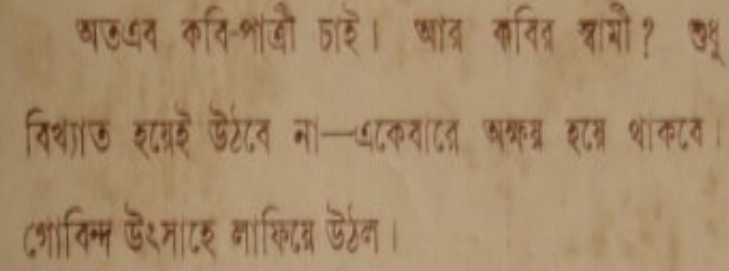 অতএব কবি-পাত্রী চাই। আর কবির স্বামী? শুধু
বিখ্যাত হয়েই উঠবে না—একেবারে অক্ষয় হয়ে থাকবে।
গোবিন্দ উৎসাহে লাফিয়ে উঠল।